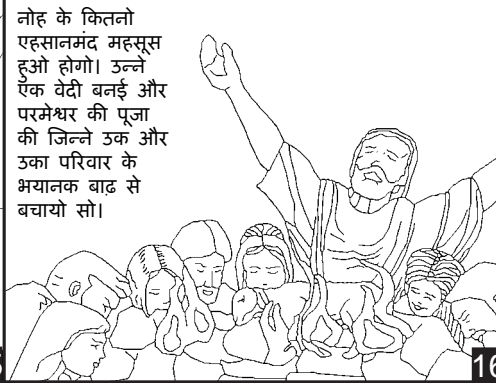 नोह के कितनो
एहसानमंद महसूस
हुओ होगो। उन्ने
एक वेदी बनई और
परमेश्वर की पूजा
की जिन्ने उक और
उका परिवार के
भयानक बाढ़ से
बचायो सो।
16